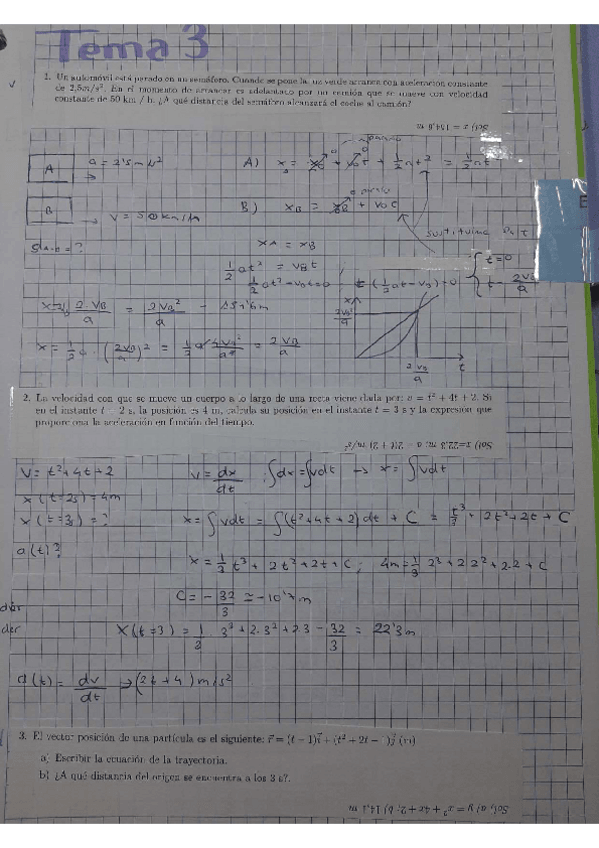 Tema 3
1. Un automóvil está parado en un semáforo. Cuando se pone la luz verde arranca con aceleración constante
de 2,5m/s². En el momento de arrancar es adelantado por un camión que se mueve con velocidad
constante de 50 km / h. ¿A qué distancia del semáforo alcanzará el coche al camión?
Sol) x = 154,3 m
A a = 2'5 m/s² A) x = x0 + v0t + 1/2 at² = 1/2 at²
B → V = 50 km/h B) xB = x0B + v0t
xA = xB
1/2 at² = vB t ;
1/2 at² - vBt = 0 t (1/2 at - vB) = 0 { t = 0
t = 2VB/a
x = 1/2 a · (2VB/a)² = 1/2 a 4VB²/a² = 2VB/a
2VB/a t
2. La velocidad con que se mueve un cuerpo a lo largo de una recta viene dada por: v = t² + 4t + 2. Si
en el instante t = 2 s, la posición es 4 m, calcula su posición en el instante t = 3 s y la expresión que
proporciona la aceleración en función del tiempo.
Sol) x=22,3 m; a = 2(t + 2) m/s²
V = t² + 4t + 2 v = dx/dt ; ∫dx = ∫vdt → x = ∫vdt
x (t=2s) = 4m
x (t=3s) = ? x = ∫vdt = ∫(t²+4t+2) dt + C = t³/3 + 2t² + 2t + C
a (t)?
x = 1/3 t³ + 2t² + 2t + C ; 4m = 1/3 2³ + 2·2² + 2·2 + C
C = - 32/3 ≃ -10'7 m
der
x (t=3) = 1/3 3³ + 2·3² + 2·3 - 32/3 = 22'3 m
a (t) = dv/dt → (2t + 4) m/s²
3. El vector posición de una partícula es el siguiente:
a) Escribir la ecuación de la trayectoria.
b) ¿A qué distancia del origen se encuentra a los 3 s?.
Sol) a) y = x² + 4x + 2; b) 14,1 m